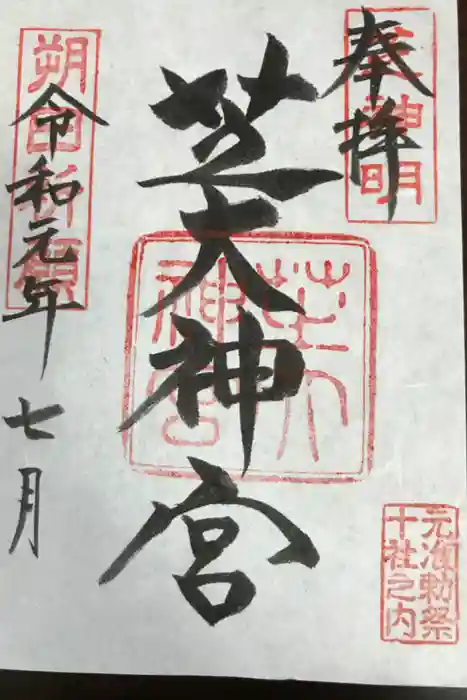 奉拝
芝神明
芝大神宮
芝大神宮
令和元年七月
朔日祈願
元准勅祭
十社之内